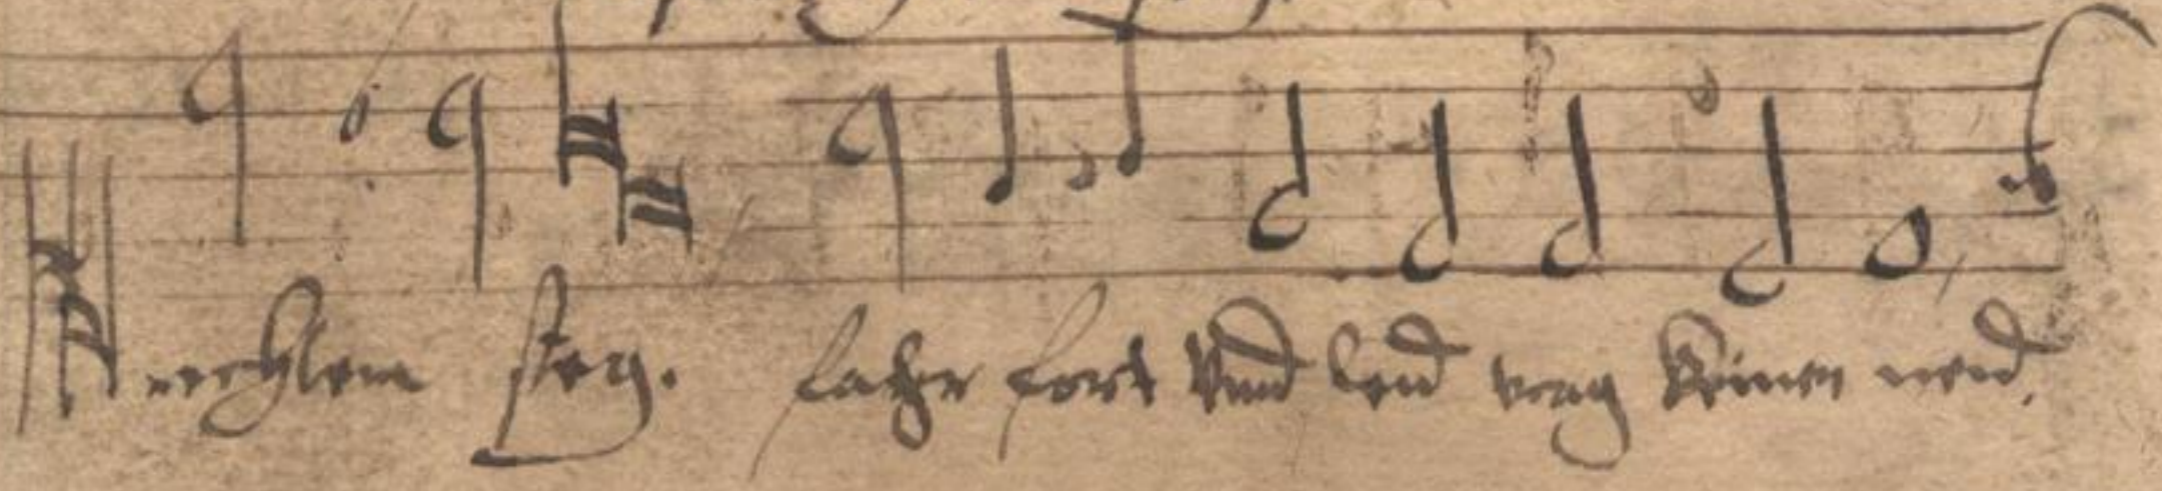 steg. fahr fort Und leid trag keinen neid.